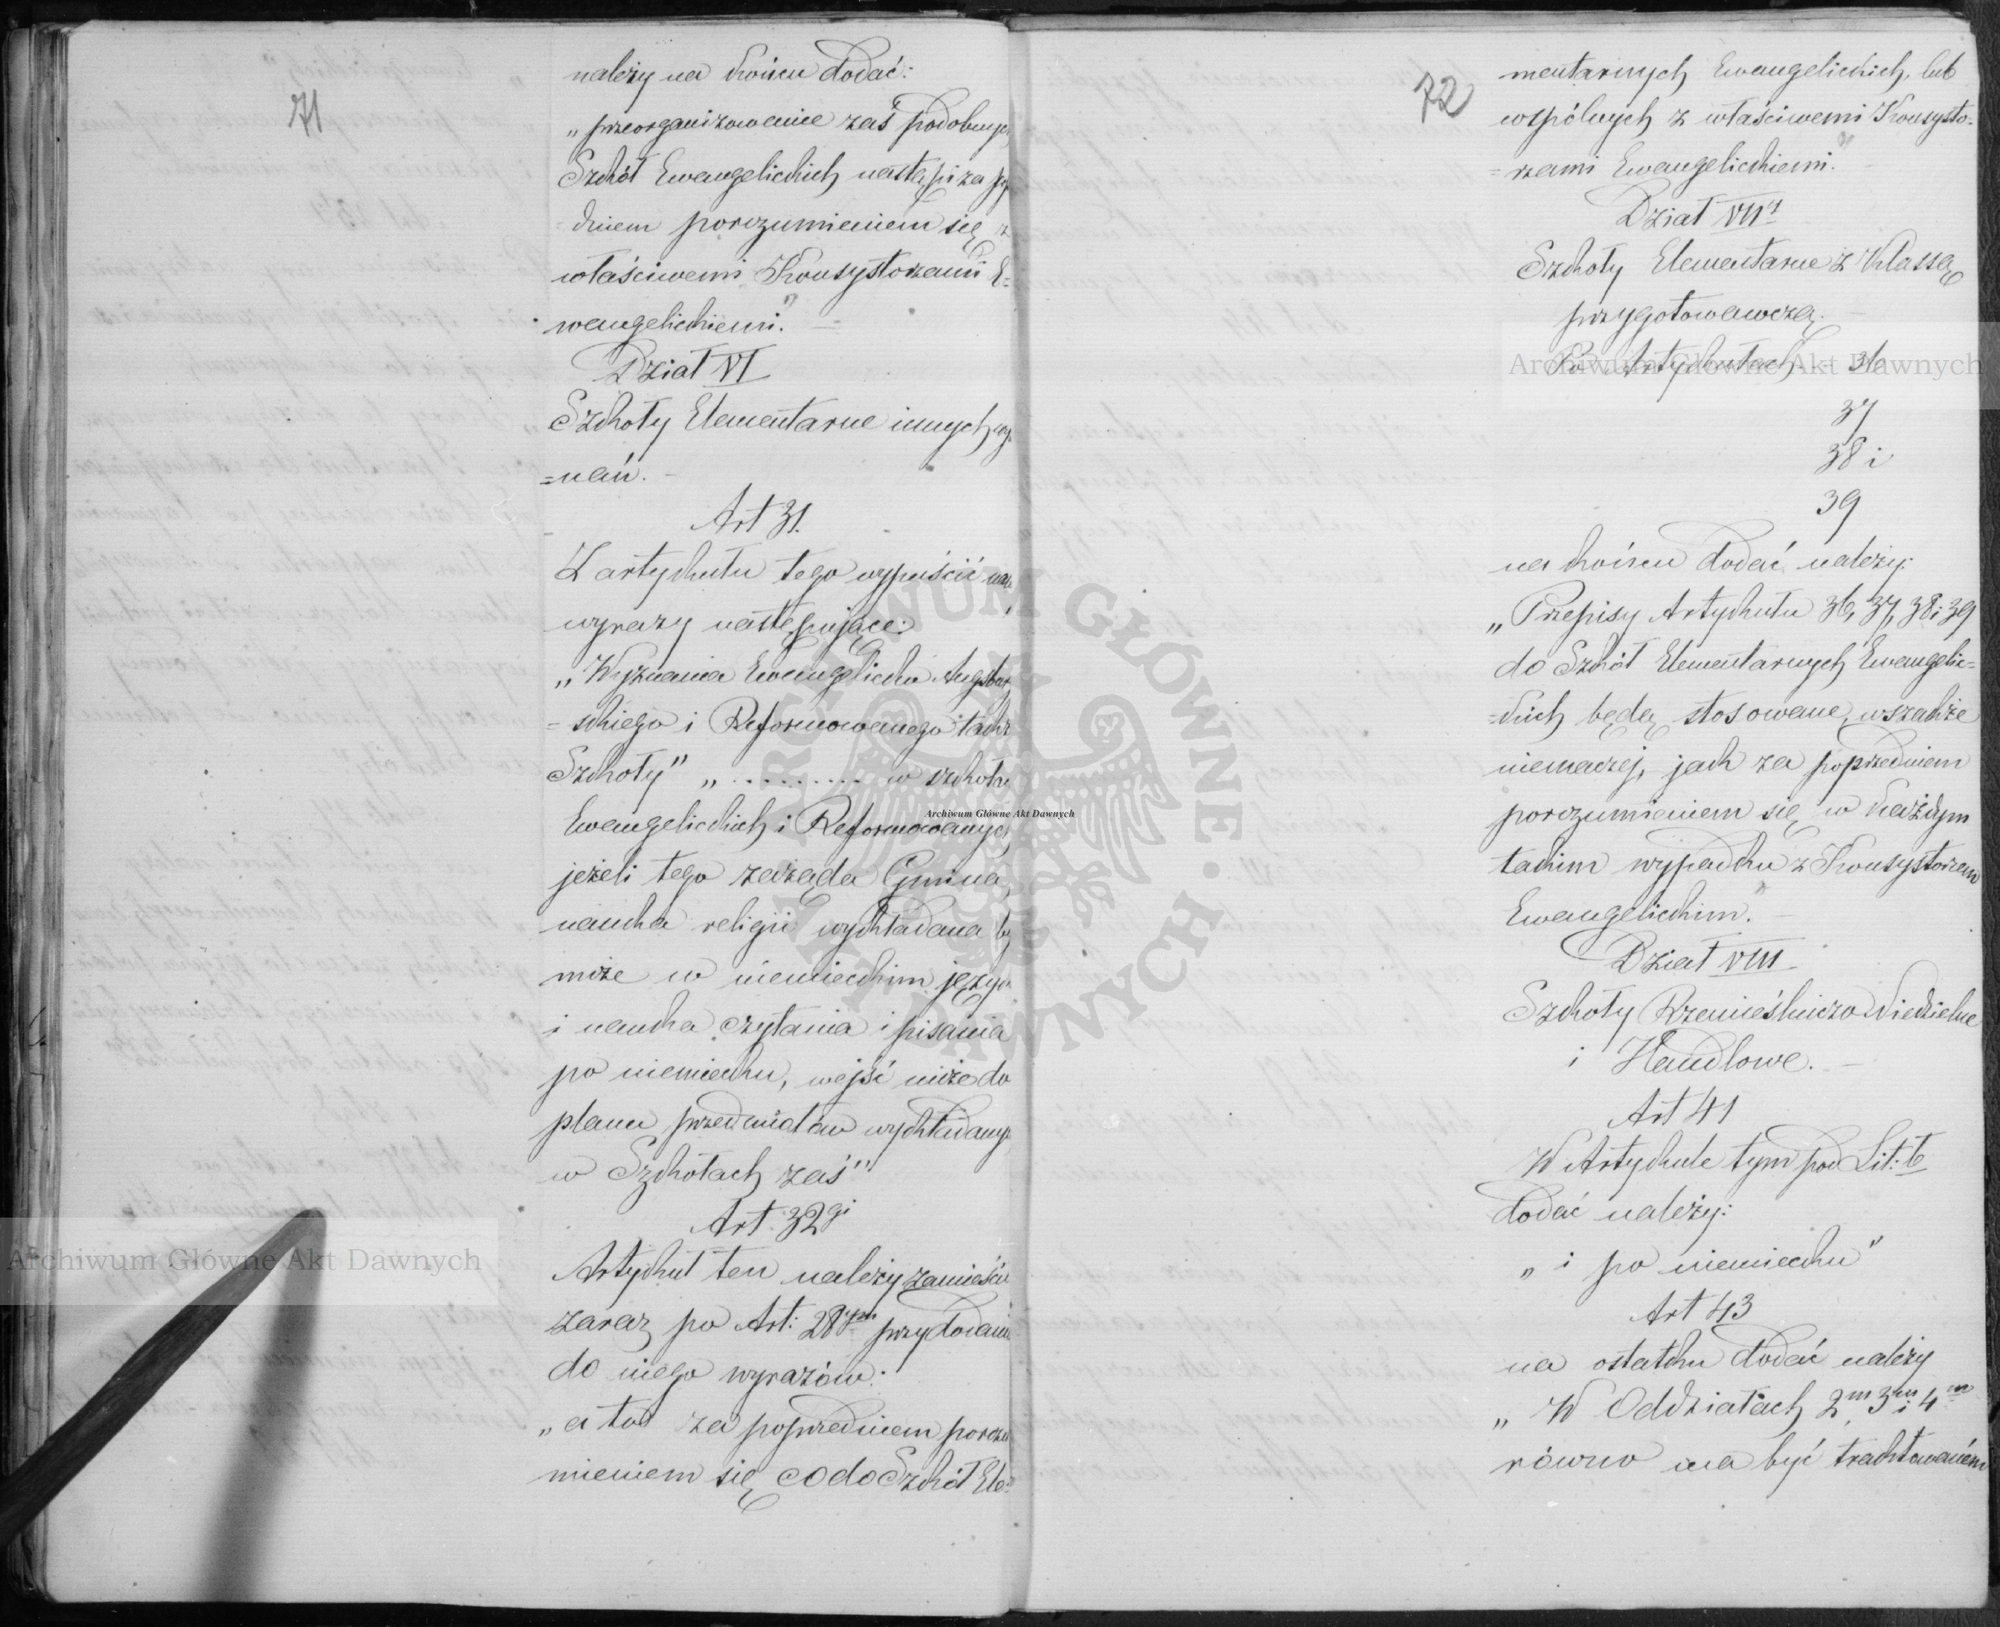 71
należy na końcu dodać:
„przeorganizowanie zaś podobnych
Szkół Ewangelickich nastąpi za
dniem porozumieniem się z
właściwemi Konsystorzami E=
wangelickiemi."
Dział VI
Szkoły Elementarne innych wy
=nań.
Art 31.
Z artykułu tego wypuścić
wyrazy następujące:
„Wyznania Ewangelicko Augsbur
=skiego i Reformowanego także
Szkoły" „.......... w szkołach
Ewangelickich i Reformowanych
jeżeli tego zażąda Gmina,
nauka religii wykładana by
może w niemieckim języku
i nauka czytania i pisania
po niemiecku, wejść może do
planu przedmiotów wykładanych
w Szkołach zaś"
Art. 32gi
Artykuł ten należy zamieścić
zaraz po Art: 28ym przydaniem
do niego wyrazów:
„a to za poprzedniem porozu
mieniem się co do Szkół Ele=
72
mentarnych Ewangelickich, lub
wspólnych z właściwemi Konsysto=
=rzami Ewangelickiemi."
Dział VIIy
Szkoły Elementarne z Klassą
przygotowawczą.
Po Artykułach – 36
37
38 i
39
na końcu dodać należy:
„Przepisy Artykułu 36, 37, 38 i 39
do Szkół Elementarnych Ewangelic=
=kich będą stosowane, wszakże
nieinaczej, jak za poprzedniem
porozumieniem się w każdym
takim wypadku z Konsystorzem
Ewangelickim."
Dział VIII
Szkoły Rzemieślniczo Niedzielne
i Handlowe.
Art 41
W Artykule tym pod Lit: b
dodać należy:
„i po niemiecku"
Art 43
na ostatku dodać należy
„W Oddziałach 2m, 3m i 4m
równo ma być traktowaném
Archiwum Główne Akt Dawnych
Archiwum Główne Akt Dawnych
Archiwum Główne Akt Dawnych
ARCHIWUM GŁÓWNE AKT DAWNYCH